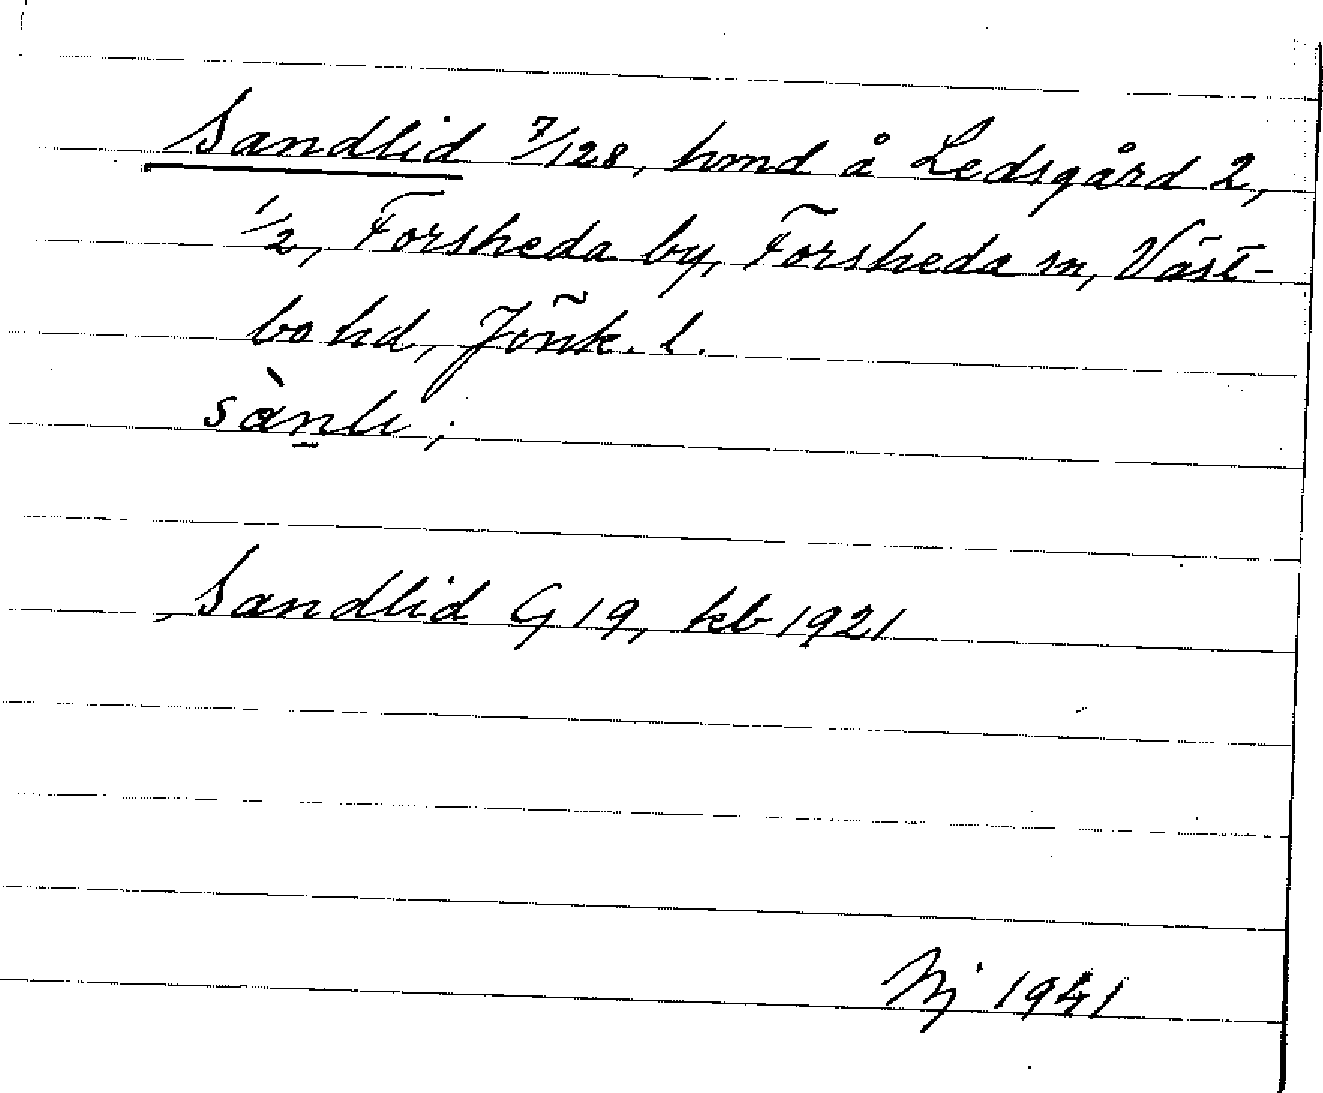 Sandlid 7/128, hmd å Ledsgård 2,
1/2, Forsheda by, Forsheda sn, Väst-
bo hd, Jönk. l.
sàn̲li;
Sandlid G 19, kb 1921
Nj 1941